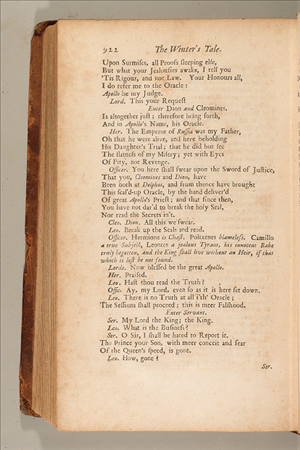 922 The Winter's Tale.
Upon Surmises, all Proofs sleeping else,
But what your Jealousies awake, I tell you
'Tis Rigour, and not Law. Your Honours all,
I do refer me to the Oracle:
Apollo be my Judge.
Lord. This your Request
Enter Dion and Cleomines.
Is altogether just; therefore bring forth,
And in Apollo's Name, his Oracle.
Her. The Emperor of Russia was my Father,
Oh that he were alive, and here beholding
His Daughter's Trial; that he did but see
The flatness of my Misery; yet with Eyes
Of Pity, not Revenge.
Officer. You here shall swear upon the Sword of Justice,
That you, Cleomines and Dion, have
Been both at Delphos, and from thence have brought
This seal'd-up Oracle, by the hand deliver'd
Of great Apollo's Priest; and that since then,
You have not dar'd to break the holy Seal,
Nor read the Secrets in't.
Cleo. Dion. All this we swear.
Leo. Break up the Seals and read.
Officer. Hermione is Chast, Polixenes blameless, Camillo
a true Subject, Leontes a jealous Tyrant, his innocent Babe
truly begotten, and the King shall live without an Heir, if that
which is lost be not found.
Lords. Now blessed be the great Apollo.
Her. Praised.
Leo. Hast thou read the Truth?
Offic. Ay, my Lord, even so as it is here set down.
Leo. There is no Truth at all i'th' Oracle;
The Sessions shall proceed; this is meer Falshood.
Enter Servant.
Ser. My Lord the King; the King.
Leo. What is the Business?
Ser. O Sir, I shall be hated to Report it.
The Prince your Son, with meer conceit and fear
Of the Queen's speed, is gone.
Leo. How, gone?
Ser.